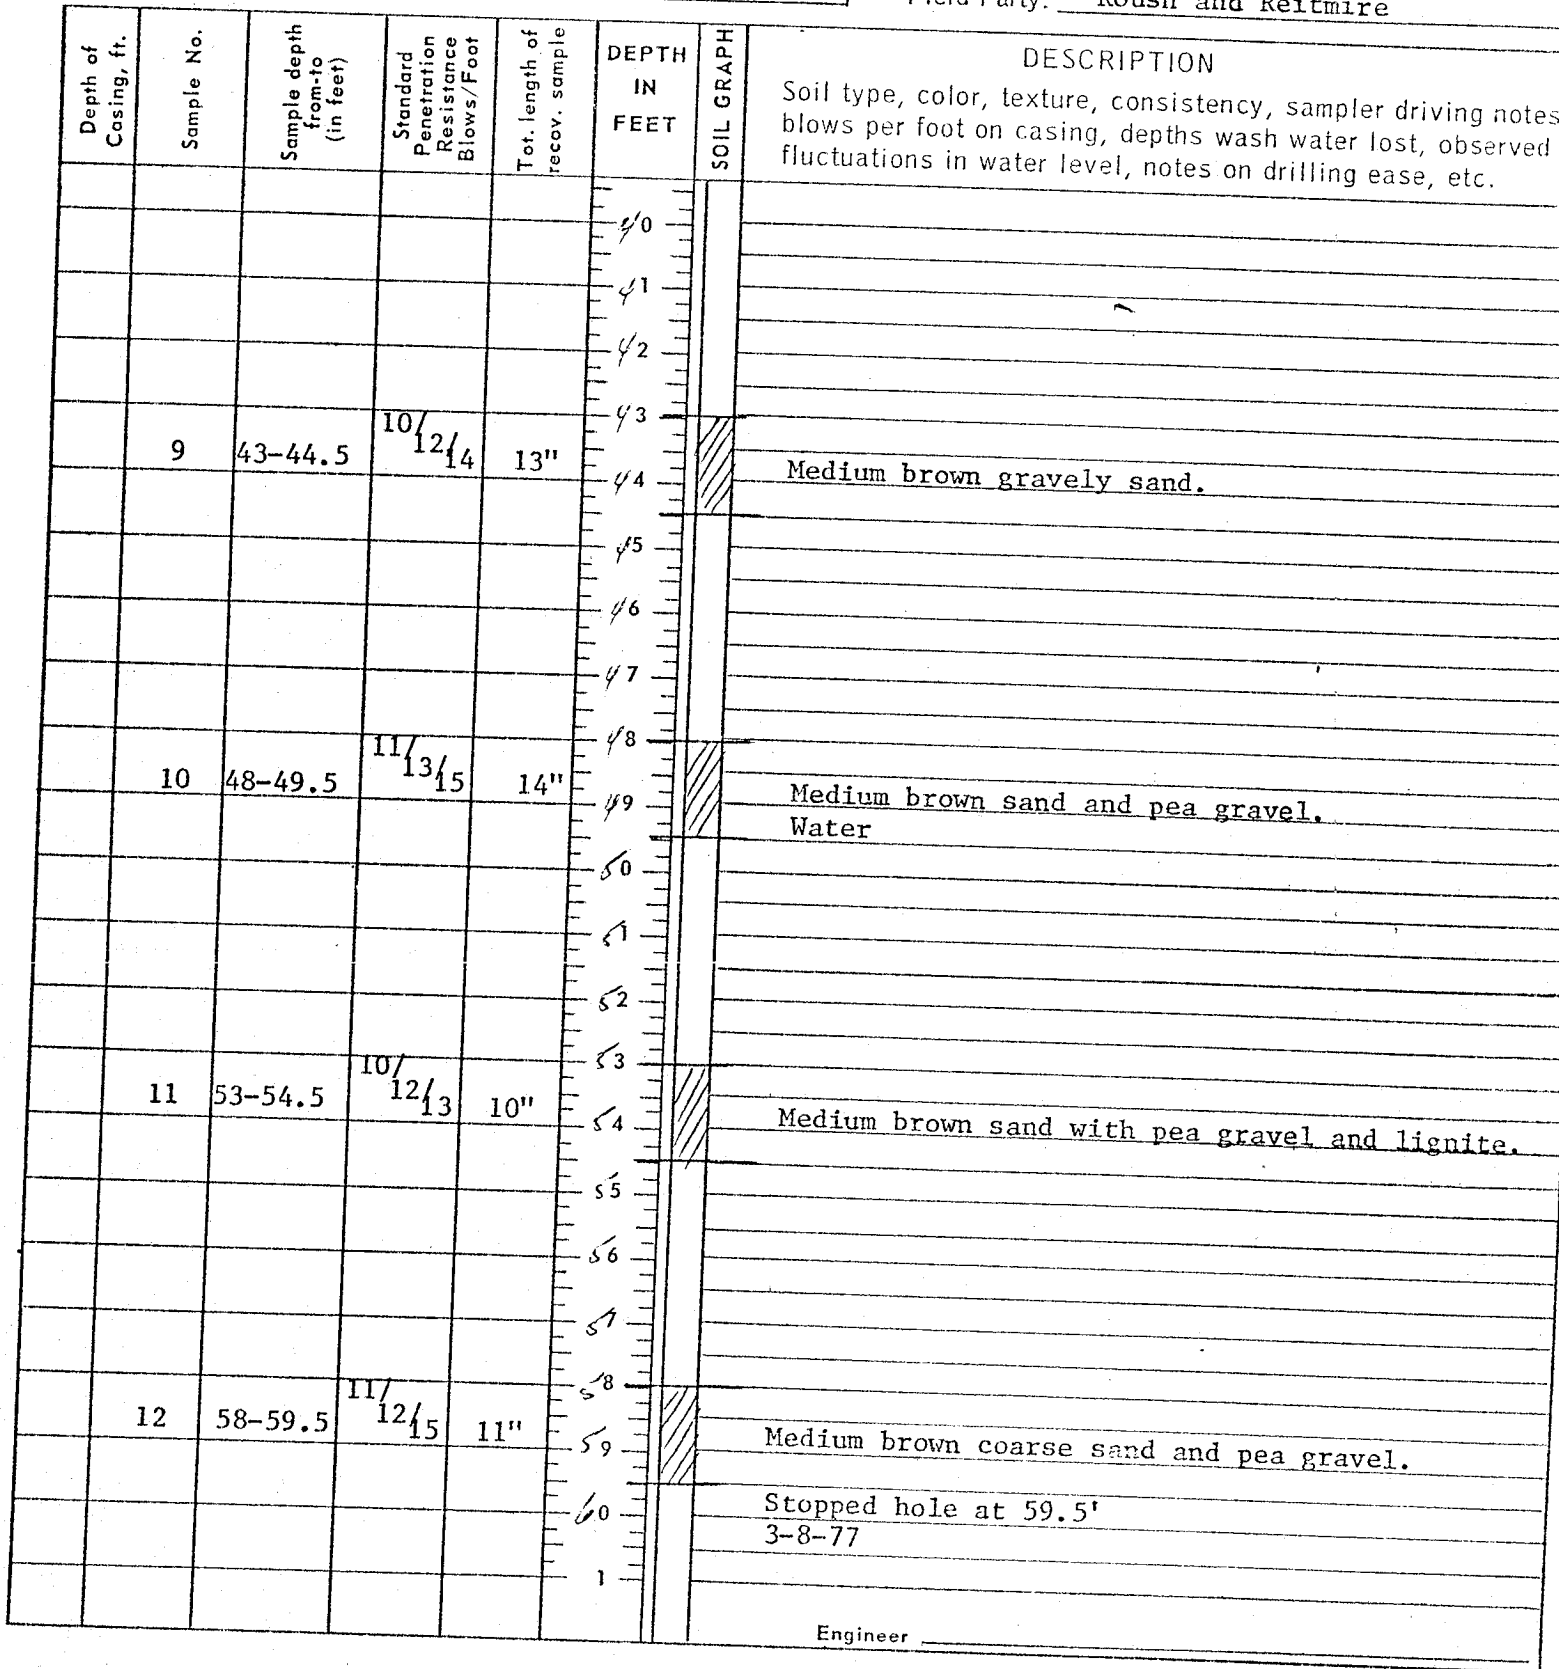 Field Party: Roush and Reitmire
Depth of Casing, ft.
Sample No.
Sample depth from-to (in feet)
Standard Penetration Resistance Blows/Foot
Tot. length of recov. sample
DEPTH IN FEET
SOIL GRAPH
DESCRIPTION
Soil type, color, texture, consistency, sampler driving notes
blows per foot on casing, depths wash water lost, observed
fluctuations in water level, notes on drilling ease, etc.
40
41
42
43
9 43-44.5 10/12/14 13" Medium brown gravely sand.
44
45
46
47
48
10 48-49.5 11/13/15 14" Medium brown sand and pea gravel.
49
Water
50
51
52
53
11 53-54.5 10/12/13 10" Medium brown sand with pea gravel and lignite.
54
55
56
57
58
12 58-59.5 11/12/15 11" Medium brown coarse sand and pea gravel.
59
60
Stopped hole at 59.5'
3-8-77
1
Engineer